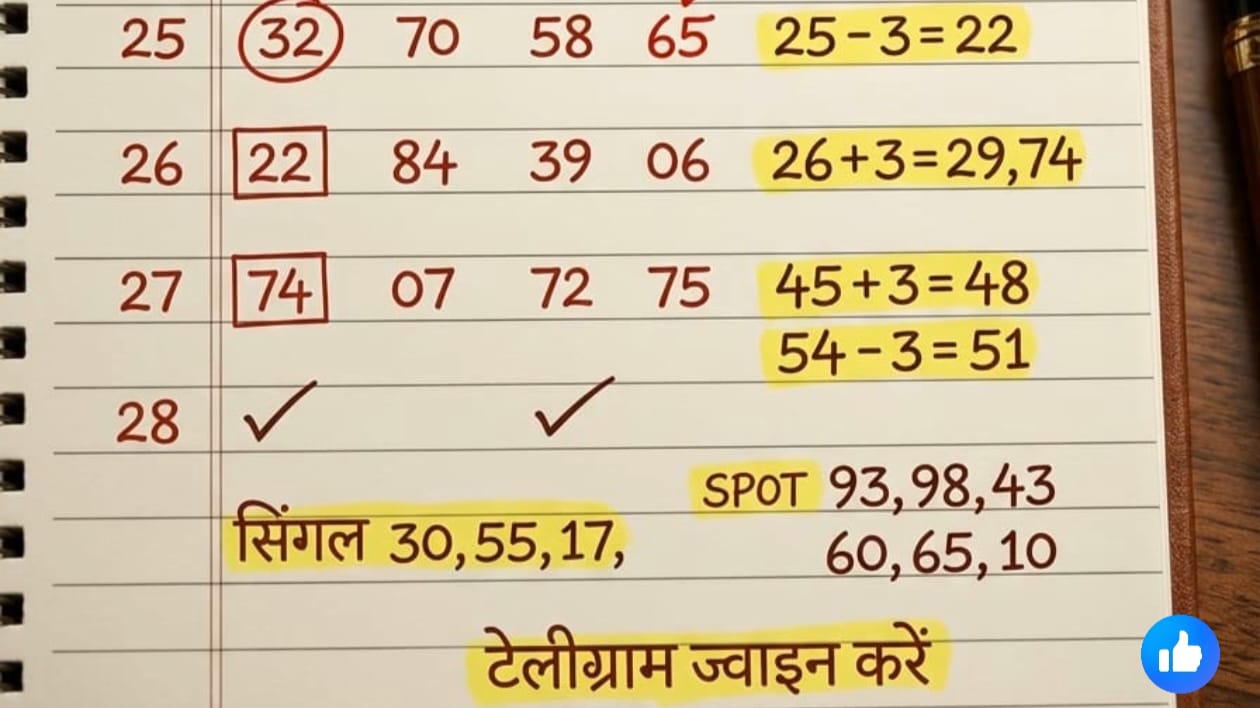 25 32 70 58 65 25-3=22
26 22 84 39 06 26+3=29,74
27 74 07 72 75 45+3=48
54-3=51
28 ✓ ✓
SPOT 93,98,43
सिंगल 30,55,17,
60,65,10
टेलीग्राम ज्वाइन करें